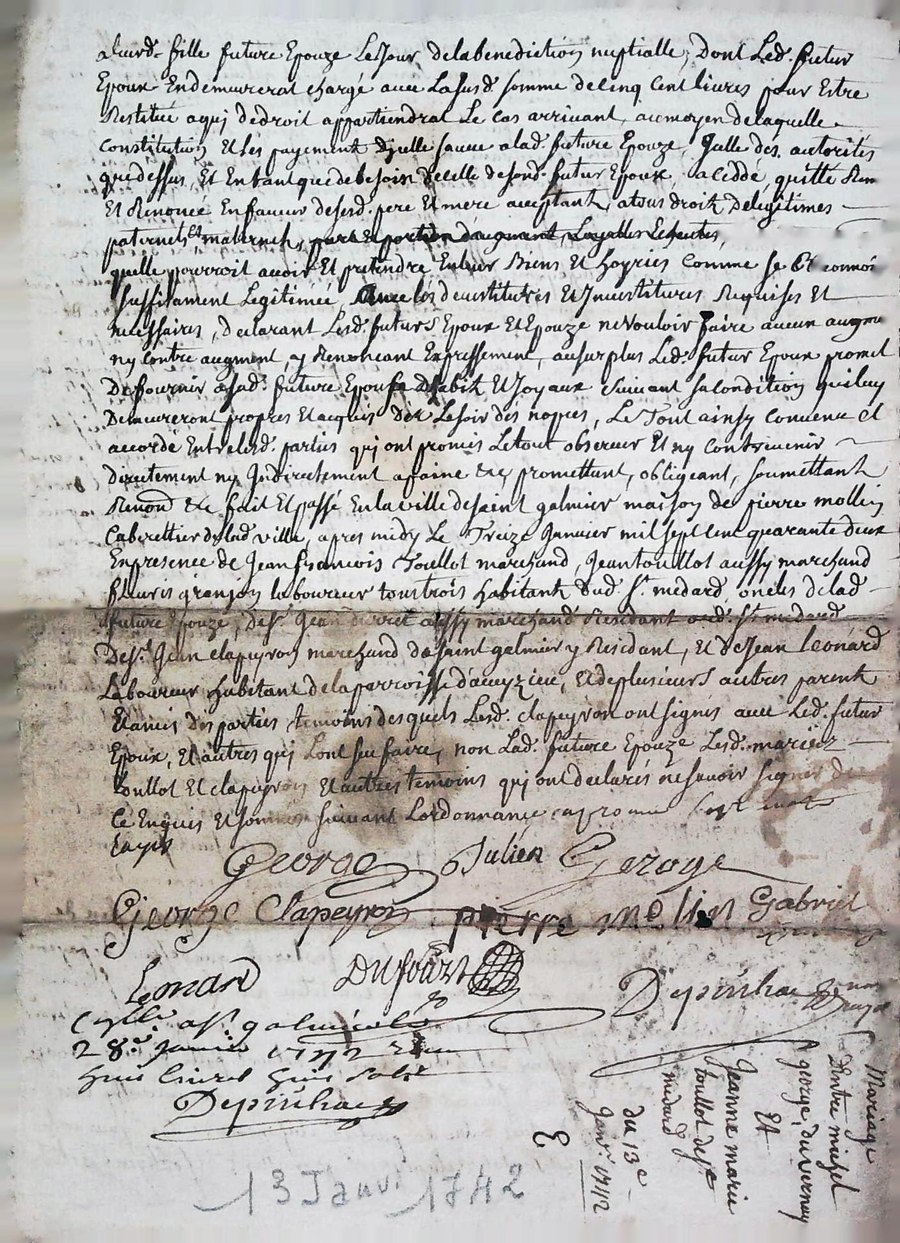 alurd. fille future Epouze Le Jour de la benediction nuptialle, Dont Led. futur
Epoux En demeurerat chargé avec La susd. somme de cinq cent livres pour Estre
Restituée a qui de droit appartiendrat Le cas arrivant, au moyen de laquelle
constitution Et Les payement d'jcelle sauve a lad. future Epouze, jcelle des. autorités
que dessus, Et En tant que de besoin de celle de sond. futur Epoux, a ceddé, quitté Rem
Et Renoncé En faveur de sesd. pere Et mere aceptant, a tous droit De legitimes
paternels Et maternels, part Et portion d'augment, Layalles Lesquelles,
quelle pourroit avoir Et pretendre En leur Biens Et hoyries comme se
suffisament Legitimée, avec les devestitures Et Jnvestitures Requises Et
necessaires, declarant Lesd. futurs Epoux Et Epouze ne Vouloir faire aucun augm
ny contre augment, y Renonceant Expressement, au surplus Led. futur Epoux promet
De fournir a sad. future Epouse d'habit Et Joyaux suivant sa condition qui luy
Demeureront propres Et acquis dès Le soir des nopces, Le Tout ainsy convenu et
accordé Entre lesd. parties qui ont promis Le tout observer Et ny contrevenir
directement ny Jndirectement a paine &c promettant, obligeant, soumettant
Renond &c fait Et passé En la ville de saint galmier maison de pierre mollin
Cabarettier de lad. ville, apres midy Le Treize Janvier mil sept cent quarante deux
En presence de Jean francois Toullot marchand, Jean toullot aussy marchand
fleuris granjon laboureur tous trois habitant dud. St. medard, oncles de lad
future Epouze, de sr. Jean aussy marchand Residant aud. St. medard
De sr. Jean clapeyron marchand de saint galmier y Residant, Et de Jean Leonard
Laboureur habitant de la parroisse d'aveyzieu, Et de plusieurs autres parent
Et amis des parties temoins desquels Lesd. clapeyron ont signés avec Led. futur
Epoux, Et autres qui Lont sçu faire, non Lad. future Epouze Lesd. mariés
toullot Et clapeyron Et autres temoins qui ont declarés ne savoir signer de
Ce Enquis Et sommés suivant Lordonnance sept mots
rayés
George Julien George
George Clapeyron pierre molin Gabriel
Leonard Dufourt Depinhac
Controllé a St. galmier le
28e. janvier 1742 Recu
huit livres huit sols
Depinhac
Mariage
Entre mizel
george duvernay
Et
Jeanne marie
toullot de St
medard
du 13e
Janv. 1742
E
13 Janvr 1742